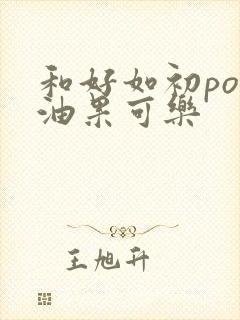 和好如初po
油果可樂
王旭升